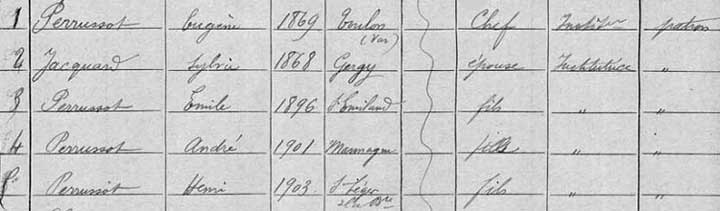 1 Perrussot Eugène 1869 Toulon (Var) Chef Institr patron
2 Jacquard Sylvie 1868 Gergy épouse Institutrice "
3 Perrussot Emile 1896 St Emiland fils " "
4 Perrussot André 1901 Marmagne fils " "
5 Perrussot Henri 1903 St Léger fils " "